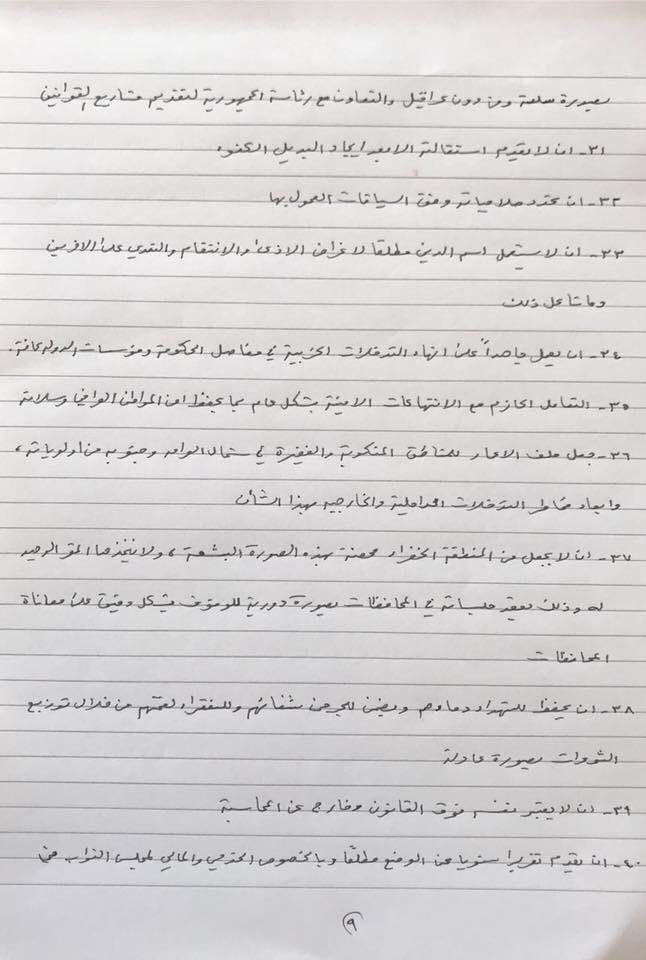 بصورة سلسة ومن دون عراقيل والتعاون مع رئاسة الجمهورية لتقديم مشاريع القوانين
٣١- ان لا يقدم استقالته الا بعد ايجاد البديل الكفوء
٣٢- ان تحدد صلاحياته وفق السياقات المعمول بها
٣٣- ان لا يستعمل اسم الدين مطلقا لاغراض الاذى والانتقام والتعدي على الاخرين
وما شاكل ذلك
٣٤- ان يعمل جاهداً على انهاء التدخلات الحزبية في مفاصل الحكومة ومؤسسات الدولة كافة.
٣٥- التعامل الحازم مع الانتهاكات الامنية بشكل عام بما يحفظ امن المواطن العراقي وسلامته
٣٦- جعل ملف الاعمار للمناطق المنكوبة والفقيرة في شمال العراق وجنوبه من اولوياته،
وابعاد مخاطر التدخلات الداخلية والخارجيه بهذا الشأن
٣٧- ان لا يجعل من المنطقة الخضراء محصنة بهذه الصورة البشعة، ولا يتخذها المقر الوحيد
له وذلك بعقد جلساته في المحافظات بصورة دورية للوقوف بشكل دقيق على معاناة
المحافظات
٣٨- ان يحفظ للشهداء دماءهم ويضمن للجرحى شفائهم وللفقراء لقمتهم من خلال توزيع
الثروات بصورة عادلة
٣٩- ان لا يعتبر نفسه فوق القانون وخارج عن المحاسبة
٤٠- ان يقدم تقريرا سنويا عن الوضع مطلقا وبالخصوص الخدمي والمالي لمجلس النواب في
٩